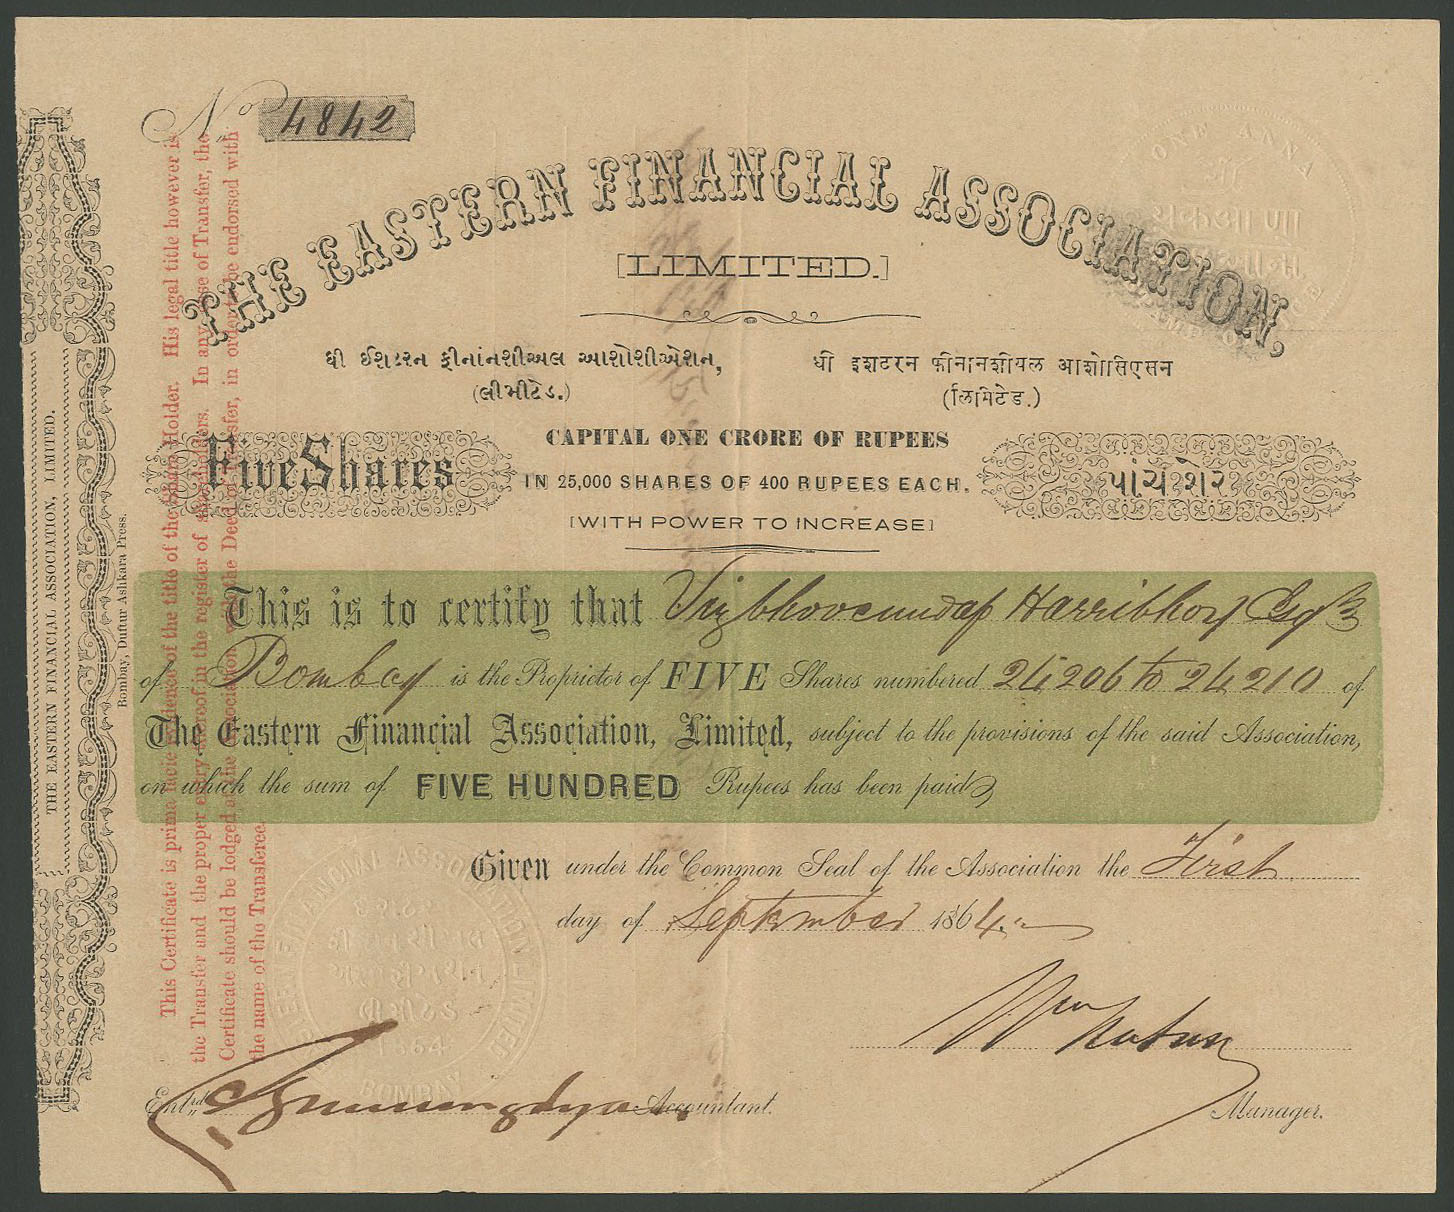 No 4842
THE EASTERN FINANCIAL ASSOCIATION,
[LIMITED.]
ધી ઈશટરન ફીનાંનશીઅલ આશોશીએશન,
(લીમીટેડ.)
धी इशटरन फीनानशीयल आशोसिएसन
(लिमिटेड.)
Five Shares
CAPITAL ONE CRORE OF RUPEES
IN 25,000 SHARES OF 400 RUPEES EACH.
[WITH POWER TO INCREASE]
પાંચ શેર
This is to certify that Harribhoy Esqr
of Bombay is the Proprietor of FIVE Shares numbered 24206 to 24210 of
The Eastern Financial Association, Limited, subject to the provisions of the said Association,
on which the sum of FIVE HUNDRED Rupees has been paid
Given under the Common Seal of the Association the First
day of September 1864
Manager.
Entrd Accountant.
This Certificate is prima facie evidence of the title of the Share Holder. His legal title however is
the Transfer and the proper entry thereof in the register of shareholders. In any case of Transfer, the
Certificate should be lodged at the Association with the Deed of Transfer, in order to be endorsed with
the name of the Transferee.
THE EASTERN FINANCIAL ASSOCIATION, LIMITED.
Bombay, Duftur Ashkara Press.
ONE ANNA
1864
BOMBAY